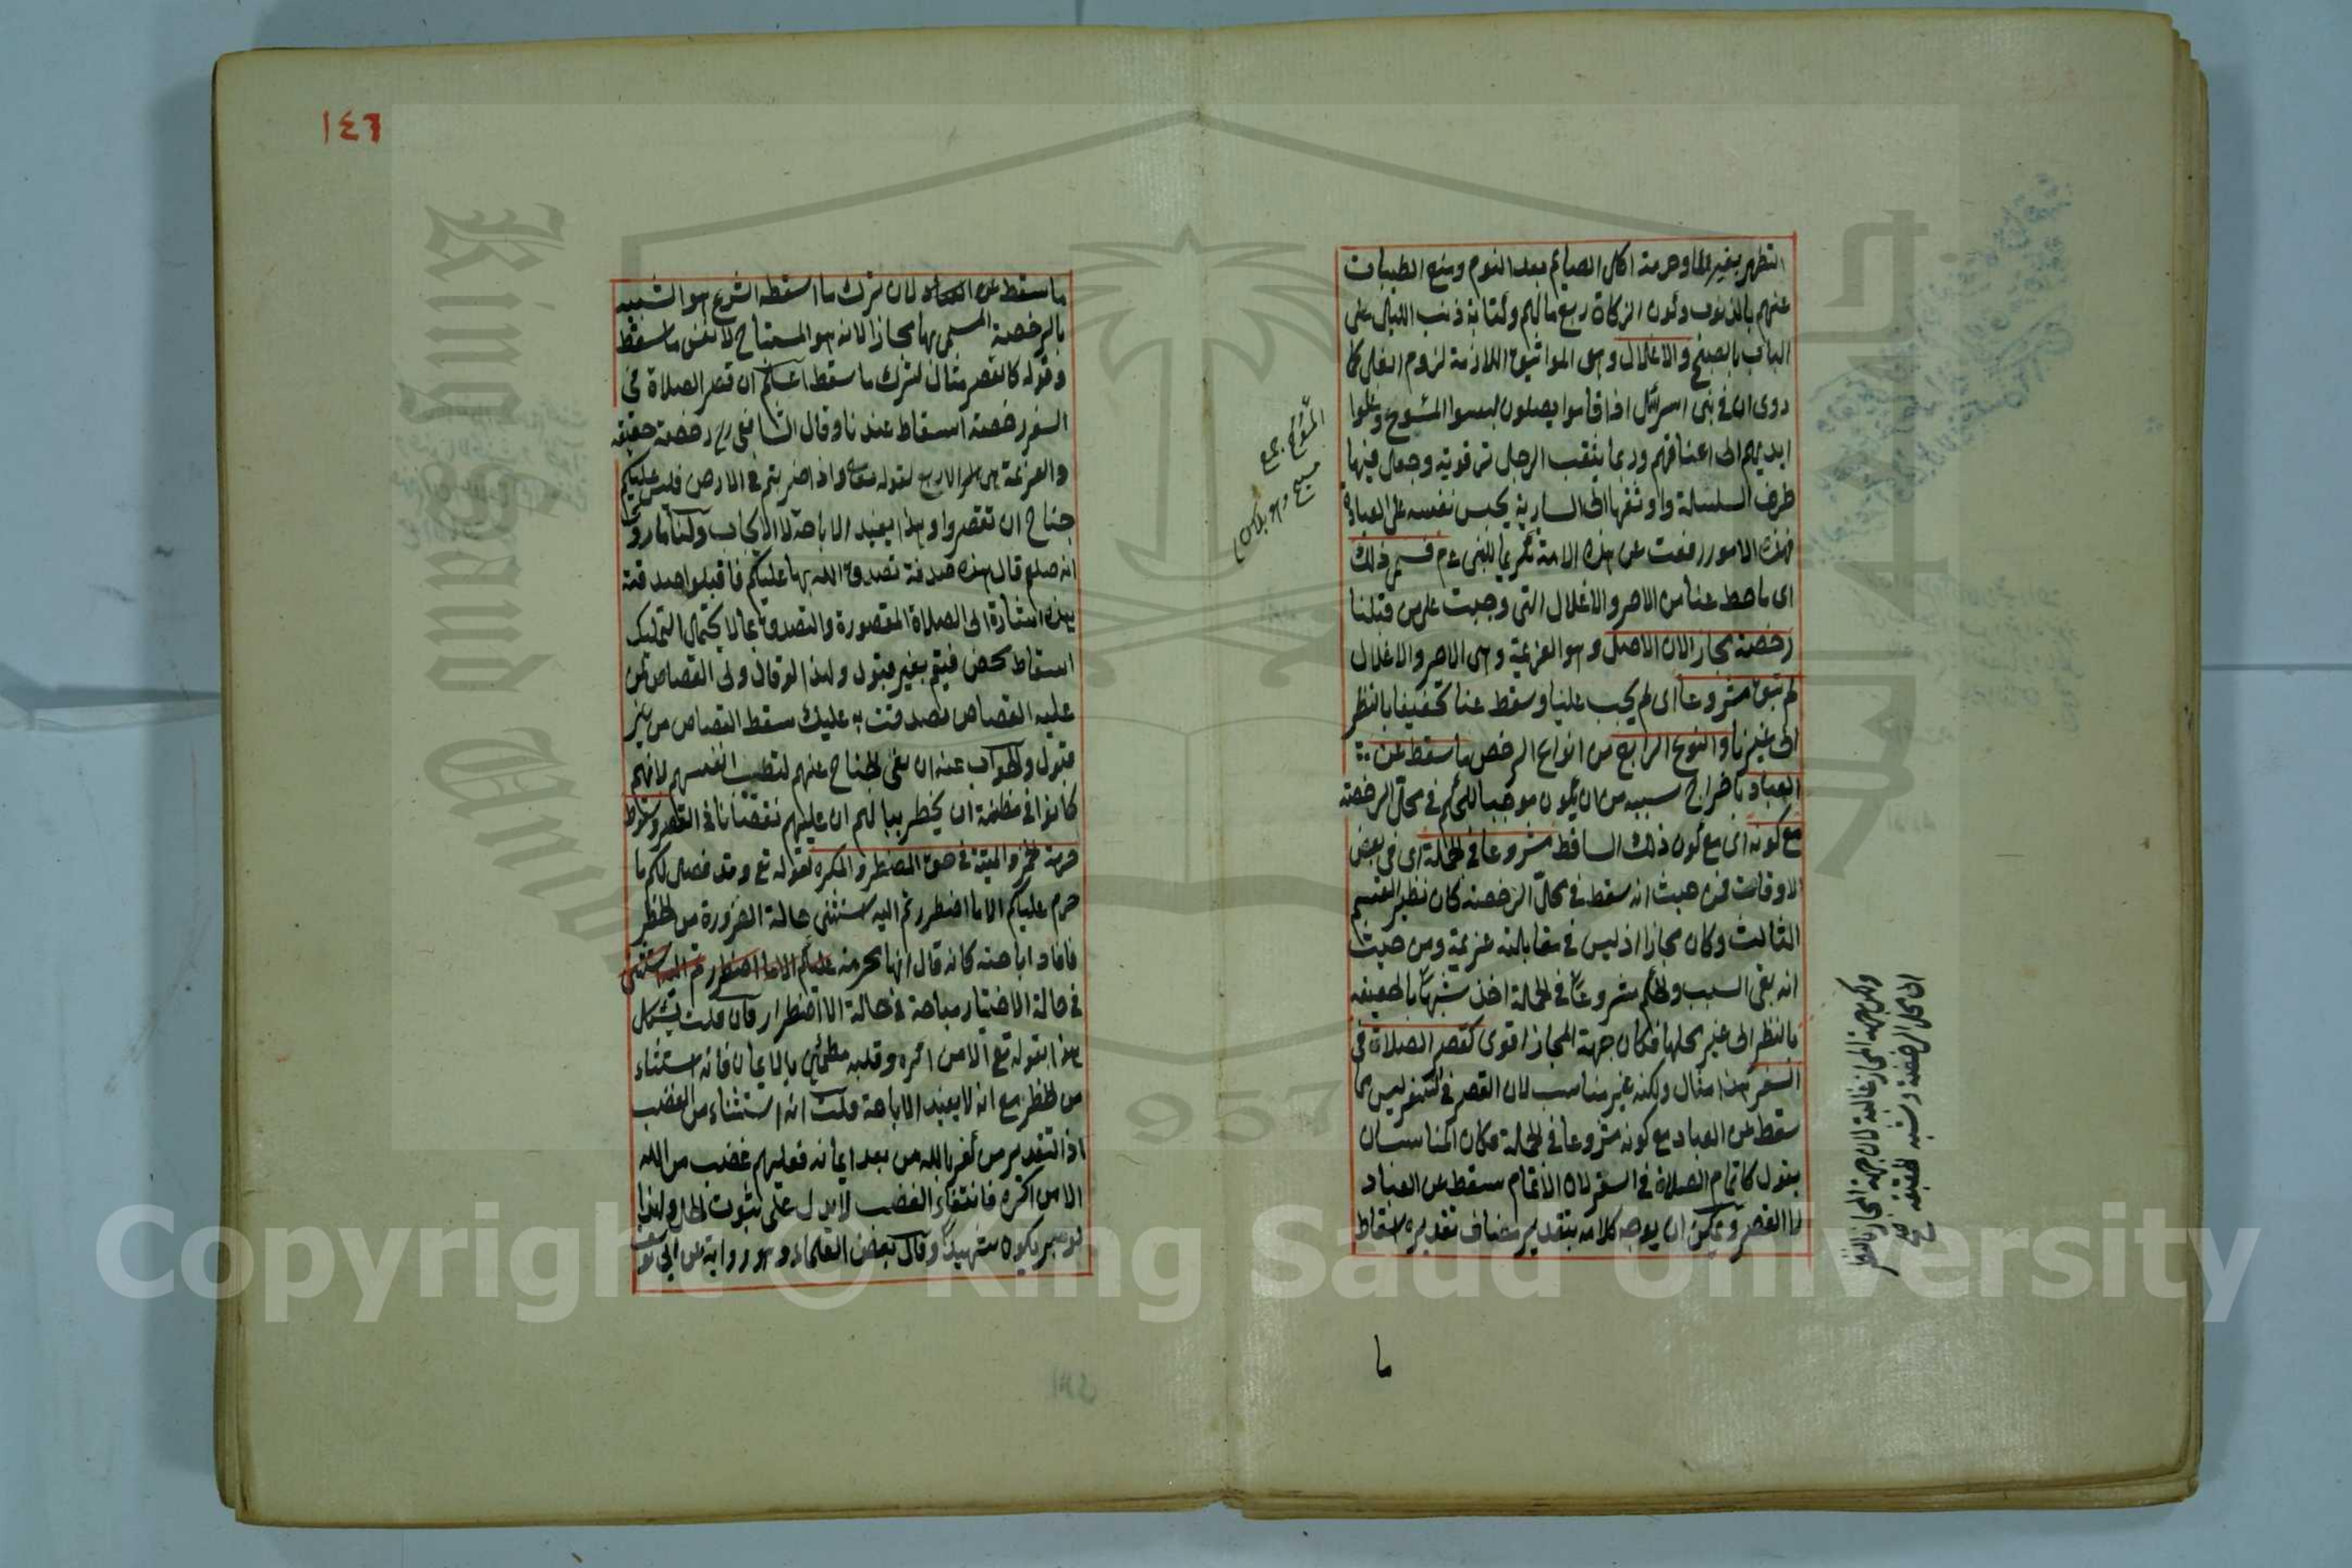 التطهر بغير الماء وحرمة اكل الصايم بعد النوم ومنع الطيبات
عنهم بالذنوب وكون الزكاة ربع مالهم وكتابة ذنب الليل على
الباب بالصبح والاغلال وهى المواثيق اللازمة لزوم الغل كما
روى ان فى بنى اسرائيل اذا قاموا يصلون لبسوا المسوح وغلوا
ايديهم الى اعناقهم وربما يثقب الرجل ترقوته وجعل فيها
طرف السلسلة واوثقها الى السارية يحبس نفسه على العبادة
فهذه الامور رفعت عن هذه الامة تكريما للنبى عم فسمى ذلك
اى ما حط عنا من الاصر والاغلال التى وجبت على من قبلنا
رخصة مجازا لان الاصل وهو العزيمة وهى الاصر والاغلال
لم تبق مشروعا اى لم يجب علينا وسقط عنا تخفيفا بالنظر
الى غيرنا والنوع الرابع من انواع الرخص ما سقط عن
العباد باخراج سببه من ان يكون موجبا للحكم فى محل الرخصة
مع كونه اى مع كون ذلك الساقط مشروعا فى الجملة اى فى بعض
الاوقات فمن حيث انه سقط فى محل الرخصة كان نظير القسم
الثالث وكان مجازا اذ ليس فى مقابلته عزيمة ومن حيث
انه بقى السبب والحكم مشروعا فى الجملة اخذ شبها بالحقيقة
بالنظر الى غير محلها فكان جهة المجاز اقوى كقصر الصلاة فى
السفر هذا مثال ولكنه غير مناسب لان القصر فى السفر ليس مما
سقط عن العباد مع كونه مشروعا فى الجملة فكان المناسب ان
يقول كاتمام الصلاة فى السفر لان الاتمام سقط عن العباد
لا القصر ويمكن ان يوجه كلامه بتقدير مضاف تقديره اسقاط
ما
المسوح جمع
مسح وهو بلاس
ولكن جهة المجاز غالبة لان جهة المجاز بالنظر
الى محل الرخصة وشبه الحقيقة
١٤٦
ما سقط عن العباد لان ترك ما اسقطه الشرع هو الشبيه
بالرخصة المسمى بها مجازا لانه هو المستباح لا نفس ما سقط
وقوله كالقصر مثال لترك ما سقط اعلم ان قصر الصلاة فى
السفر رخصة اسقاط عندنا وقال الشافعى رح رخصة حقيقة
والعزيمة هى الاربع لقوله تعالى واذا ضربتم فى الارض فليس عليكم
جناح ان تقصروا وهذا يفيد الاباحة لا الايجاب ولنا ما روى
انه صلعم قال هذه صدقة تصدق الله بها عليكم فاقبلوا صدقته
بهذه اشارة الى الصلاة المقصورة والتصدق بما لا يحتمل التمليك
اسقاط محض فيتم بغير قبول ولهذا لو قال ولى القصاص لمن
عليه القصاص تصدقت به عليك سقط القصاص من غير
قبول والجواب عنه ان نفى الجناح عنهم لتطييب انفسهم لانهم
كانوا فى مظنة ان يخطر ببالهم ان عليهم نقصانا فى القصر وسقوط
حرمة الخمر والميتة فى حق المضطر والمكره لقوله تع وقد فصل لكم ما
حرم عليكم الا ما اضطررتم اليه استثنى حالة الضرورة من الحظر
فافاد اباحته كانه قال انها محرمة عليكم الا ما اضطررتم اليه استثنى
فى حالة الاختيار مباحة فى حالة الاضطرار فان قلت يشكل
هذا بقوله تع الا من اكره وقلبه مطمئن بالايمان فانه استثناء
من الحظر مع انه لا يفيد الاباحة قلت انه استثناء من الغضب
اذ التقدير من كفر بالله من بعد ايمانه فعليهم غضب من الله
الا من اكره فانتفاء الغضب لا يدل على ثبوت الحل ولهذا
لو صبر يكون شهيدا وقال بعض العلماء وهو رواية عن ابى يوسف
King Saud University
1957
Copyright © King Saud University